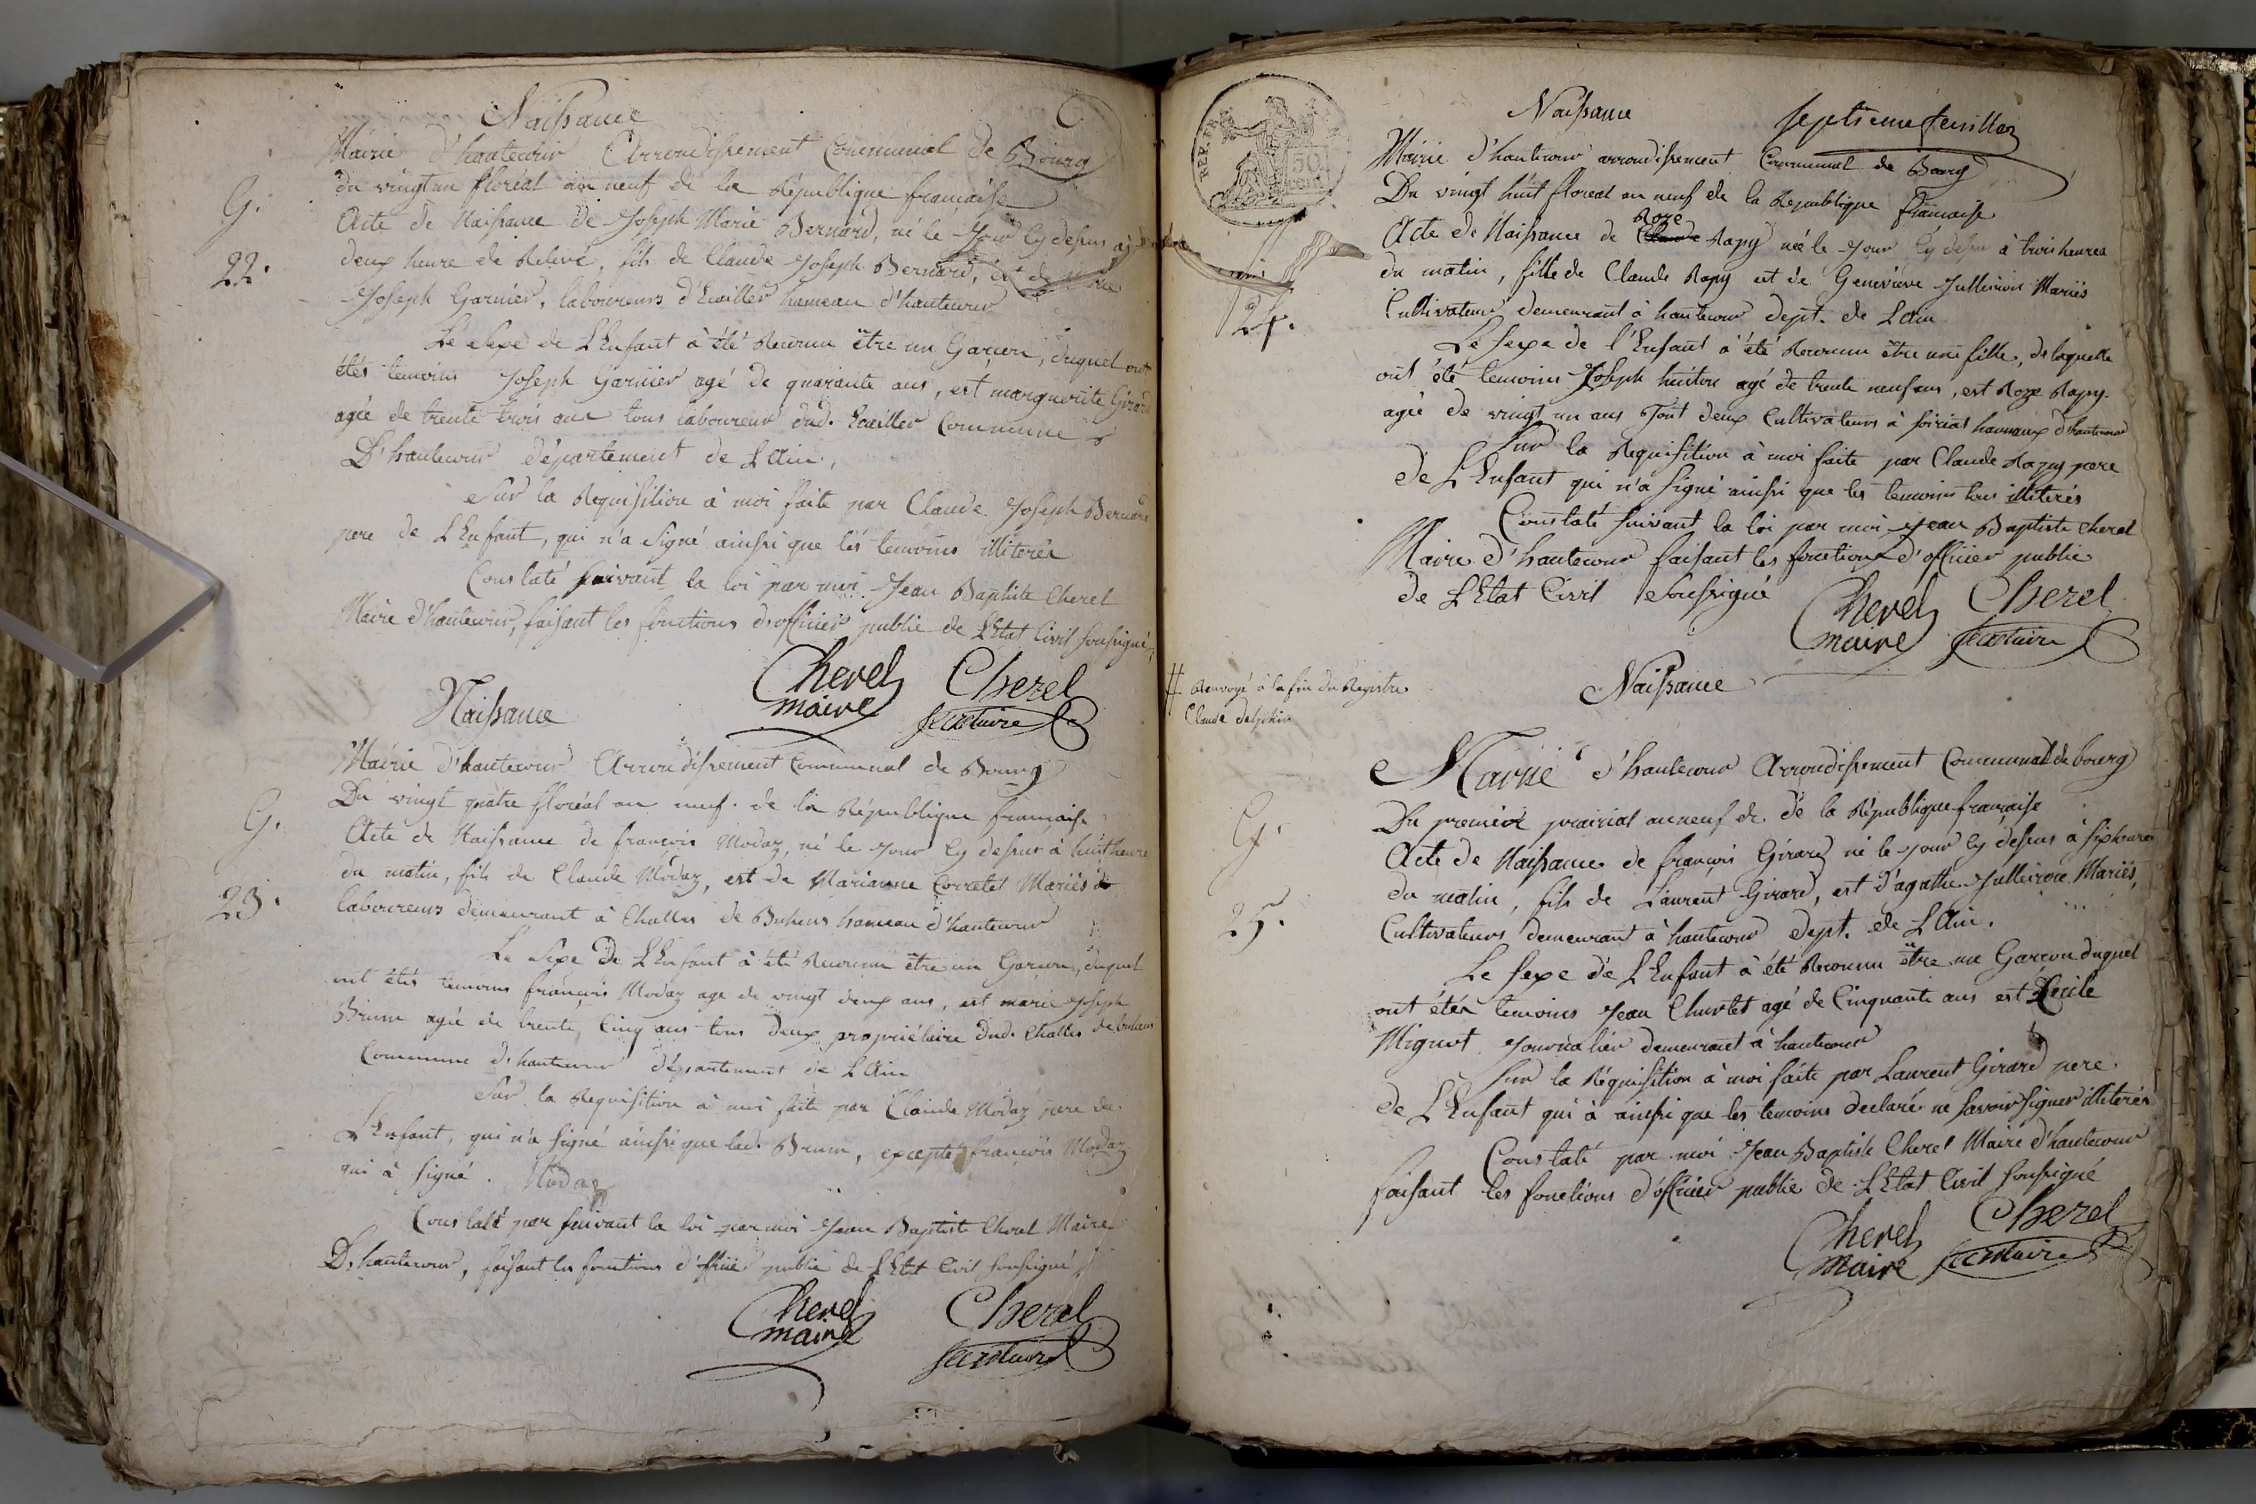 Naissance
Mairie d'hautecour Arrondissement Communal de Bourg
du vingt un floréal an neuf de la République française
G.
Acte de Naissance de Joseph Marie Bernard, né le Jour cy dessus à
22.
deux heure de Relevé, fils de Claude Joseph Bernard, et de
Joseph Garnier, laboureurs d'Evailles hameau d'hautecour
Le Sexe de L'Enfant à été Reconnu être un Garçon, duquel ont
étés temoins Joseph Garnier agé de quarante ans, est marguerite Girard
agée de trente trois ans tous laboureur dud. Commune
D'hautecour département de L'Ain,
Sur la Requisition à moi faite par Claude Joseph Bernard
pere de L'Enfant, qui n'a Signé ainssi que les temoins illiterés
Constaté suivant la loi par moi Jean Baptiste Cherel
Maire d'hautecour, faisant les fonctions d'officier public de L'Etat Civil soussigné,
Cherel Cherel
maire secretaire
Naissance
Mairie d'hautecour Arrondissement Communal de Bourg
Du vingt quatre floréal an neuf. de la République française
G.
Acte de Naissance de françois Modaz, né le Jour cy dessus à huit heure
du matin, fils de Claude Modaz, est de Marianne Corretet Mariés
23.
laboureurs demeurant à Challes de Bohens hameau d'hautecour
Le Sexe De L'Enfant à été Reconnu être un Garçon, duquel
ont étés temoins françois Modaz age de vingt deux ans, est marie Joseph
Brunn agée de trente, Cinq ans tous deux propriétaire dud. Challes de bohens
Commune d'hautecour département de L'Ain
Sur la Requisition à moi faite par Claude Modaz pere de
L'Enfant, qui n'a signé ainssi que lad. Brunn, excepté françois Modaz
qui à signé. Modaz
Constaté par suivant la loi par moi Jean Baptiste Cherel Maire
D'hautecour, faisant les fonctions d'officier public de L'Etat Civil soussigné
Cherel Cherel
maire secretaire
REP. FRA.
50
cent
Naissance septieme feuillez
Mairie d'hautecour arrondissement Communal de Bourg
Du vingt huit floreal an neuf de la Republique française
Roze
Acte de Naissance de Claude Rapy née le Jour cy dessu à trois heures
du matin, fille de Claude Rapy est de Genevieve Jullieron Mariés
24.
Cultivateurs demeurant à hautecour dept. de L'Ain
Le sexe de l'Enfant a été Reconnu être une fille, de laquelle
ont été temoins Joseph huiton agé de trente neuf ans, est Roze Rapy
agée de vingt un ans Tout deux Cultivateurs à soiriat hameaux d'hautecour
Sur la Requisition à moi faite par Claude Rapy pere
de L'Enfant qui n'a signé ainssi que les temoins tous illiterés
Constaté suivant la loi par moi Jean Baptiste Cherel
Maire d'hautecour faisant les fonctions d'officier public
de L'Etat Civil Soussigné
Cherel Cherel
maire secretaire
# Renvoyé à la fin du Registre
Claude delphin
Naissance
Mairie d'hautecour Arrondissement Communal de bourg
Du premier prairial an neuf de de la République française
G.
Acte de Naissance de françois Girard né le Jour cy dessus à six heures
du matin, fils de Laurent Girard, est d'agathe Jullieron Mariés,
25.
Cultivateurs demeurant à hautecour dept. de L'Ain.
Le sexe de L'Enfant à été Reconnu être un Garçon duquel
ont étés temoins Jean Churlet agé de Cinquante ans est Cecile
Mignot Journalier demeurant à hautecour
Sur la Réquisition à moi faite par Laurent Girard pere
de L'Enfant qui à ainssi que les temoins declaré ne savoir signer illiterés
Constaté par moi Jean Baptiste Cherel Maire d'hautecour
faisant les fonctions d'officier public de L'Etat Civil soussigné
Cherel Cherel
maire secretaire